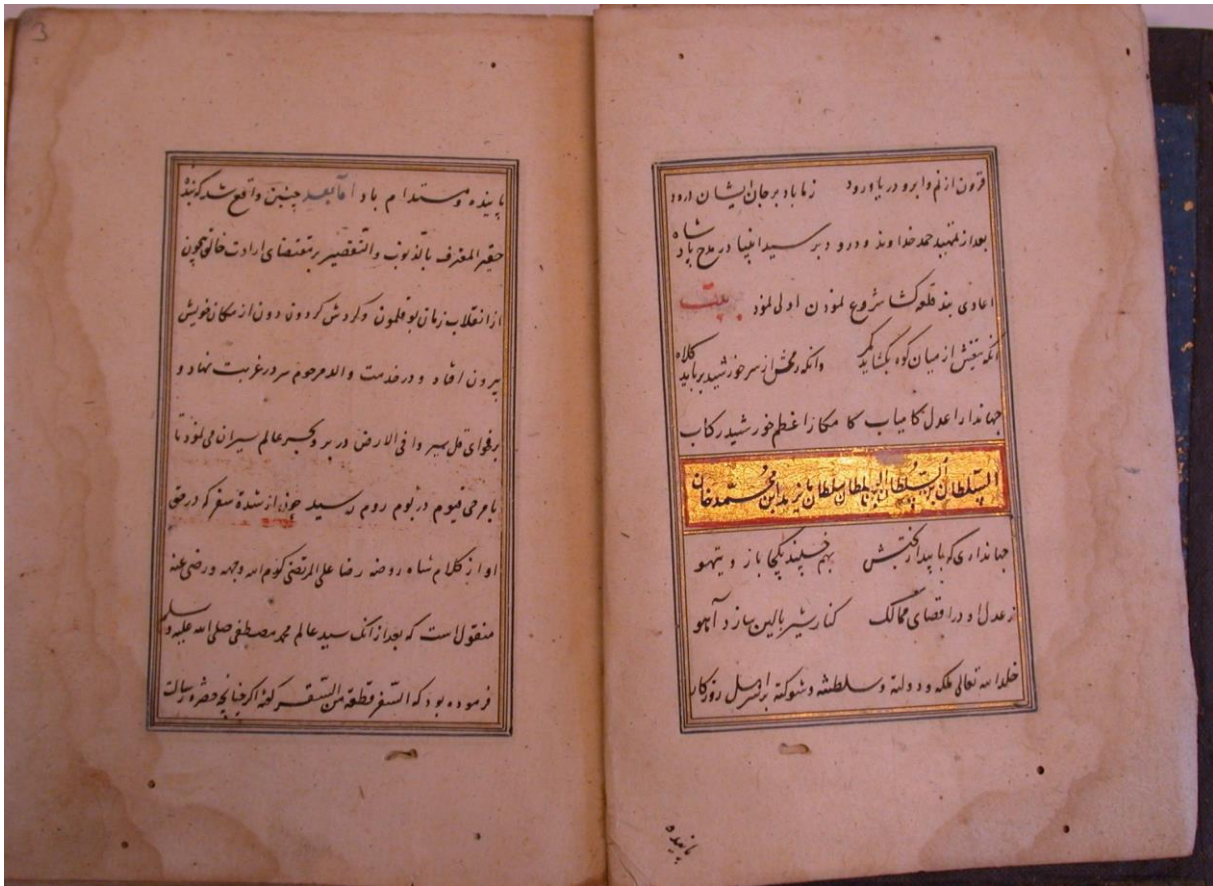 فزون از نم و ابر و دریا ورود زما باد بر جان ایشان درود
بعد از تمهید حمد خداوند و درود بر سید انبیا در مدح پادشاه
اعادی بند قلعه کشا شروع نمودن اولی نمود بیت
آنکه تیغش از میان کوه بکشاید کمر وانکه رمحش از سر خورشید برباید کلاه
جهاندار اعدل کامیاب کامکار اعظم خورشید رکاب
السلطان بن السلطان سلطان بایزید ابن محمد خان
جهانداری که با بیدار بختش بهم خسپند یکجا باز و تیهو
ز عدل او در اقصای ممالک کنار شیر بالین سازد آهو
خلد الله تعالی ملکه و دولته و سلطنته و شوکته بر اهل روزکار
پاینده
3
پاینده و مستدام باد اما بعد چنین واقع شد که بنده
حقیر المعترف بالذنوب والتقصیر بمقتضای ارادت خالق بیچون
از انقلاب زمان بوقلمون و کردش کردون دون از مکان خویش
بیرون افتاد و در خدمت والد مرحوم سر در غربت نهاد و
بر فحوای قل سیروا فی الارض در بر و بحر عالم سیران می نمود تا
بامر حی قیوم در بوم روم رسید چون از شدة سفر که در حق
او از کلام شاه روضه رضا علی المرتضی کرم الله وجهه و رضی عنه
منقول است که بعد از آنک سید عالم محمد مصطفی صلی الله علیه وسلم
فرموده بود که السفر قطعة من السقر کفته اکر چنانچه حضرة رسالت